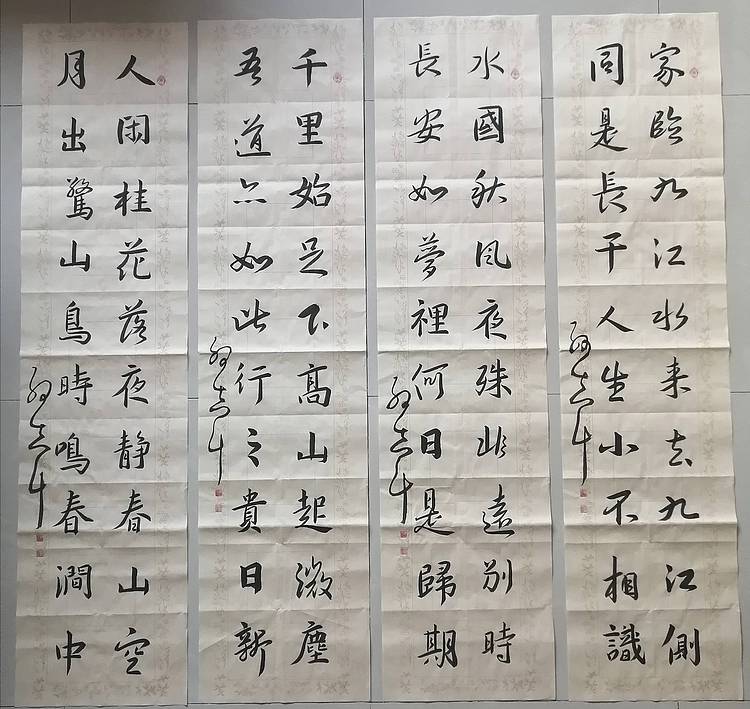 家臨九江水来去九江側
同是長干人生小不相識
水國秋風夜殊非遠别時
長安如夢裡何日是歸期
千里始足下高山起微塵
吾道亦如此行之貴日新
人閑桂花落夜静春山空
月出驚山鳥時鳴春澗中